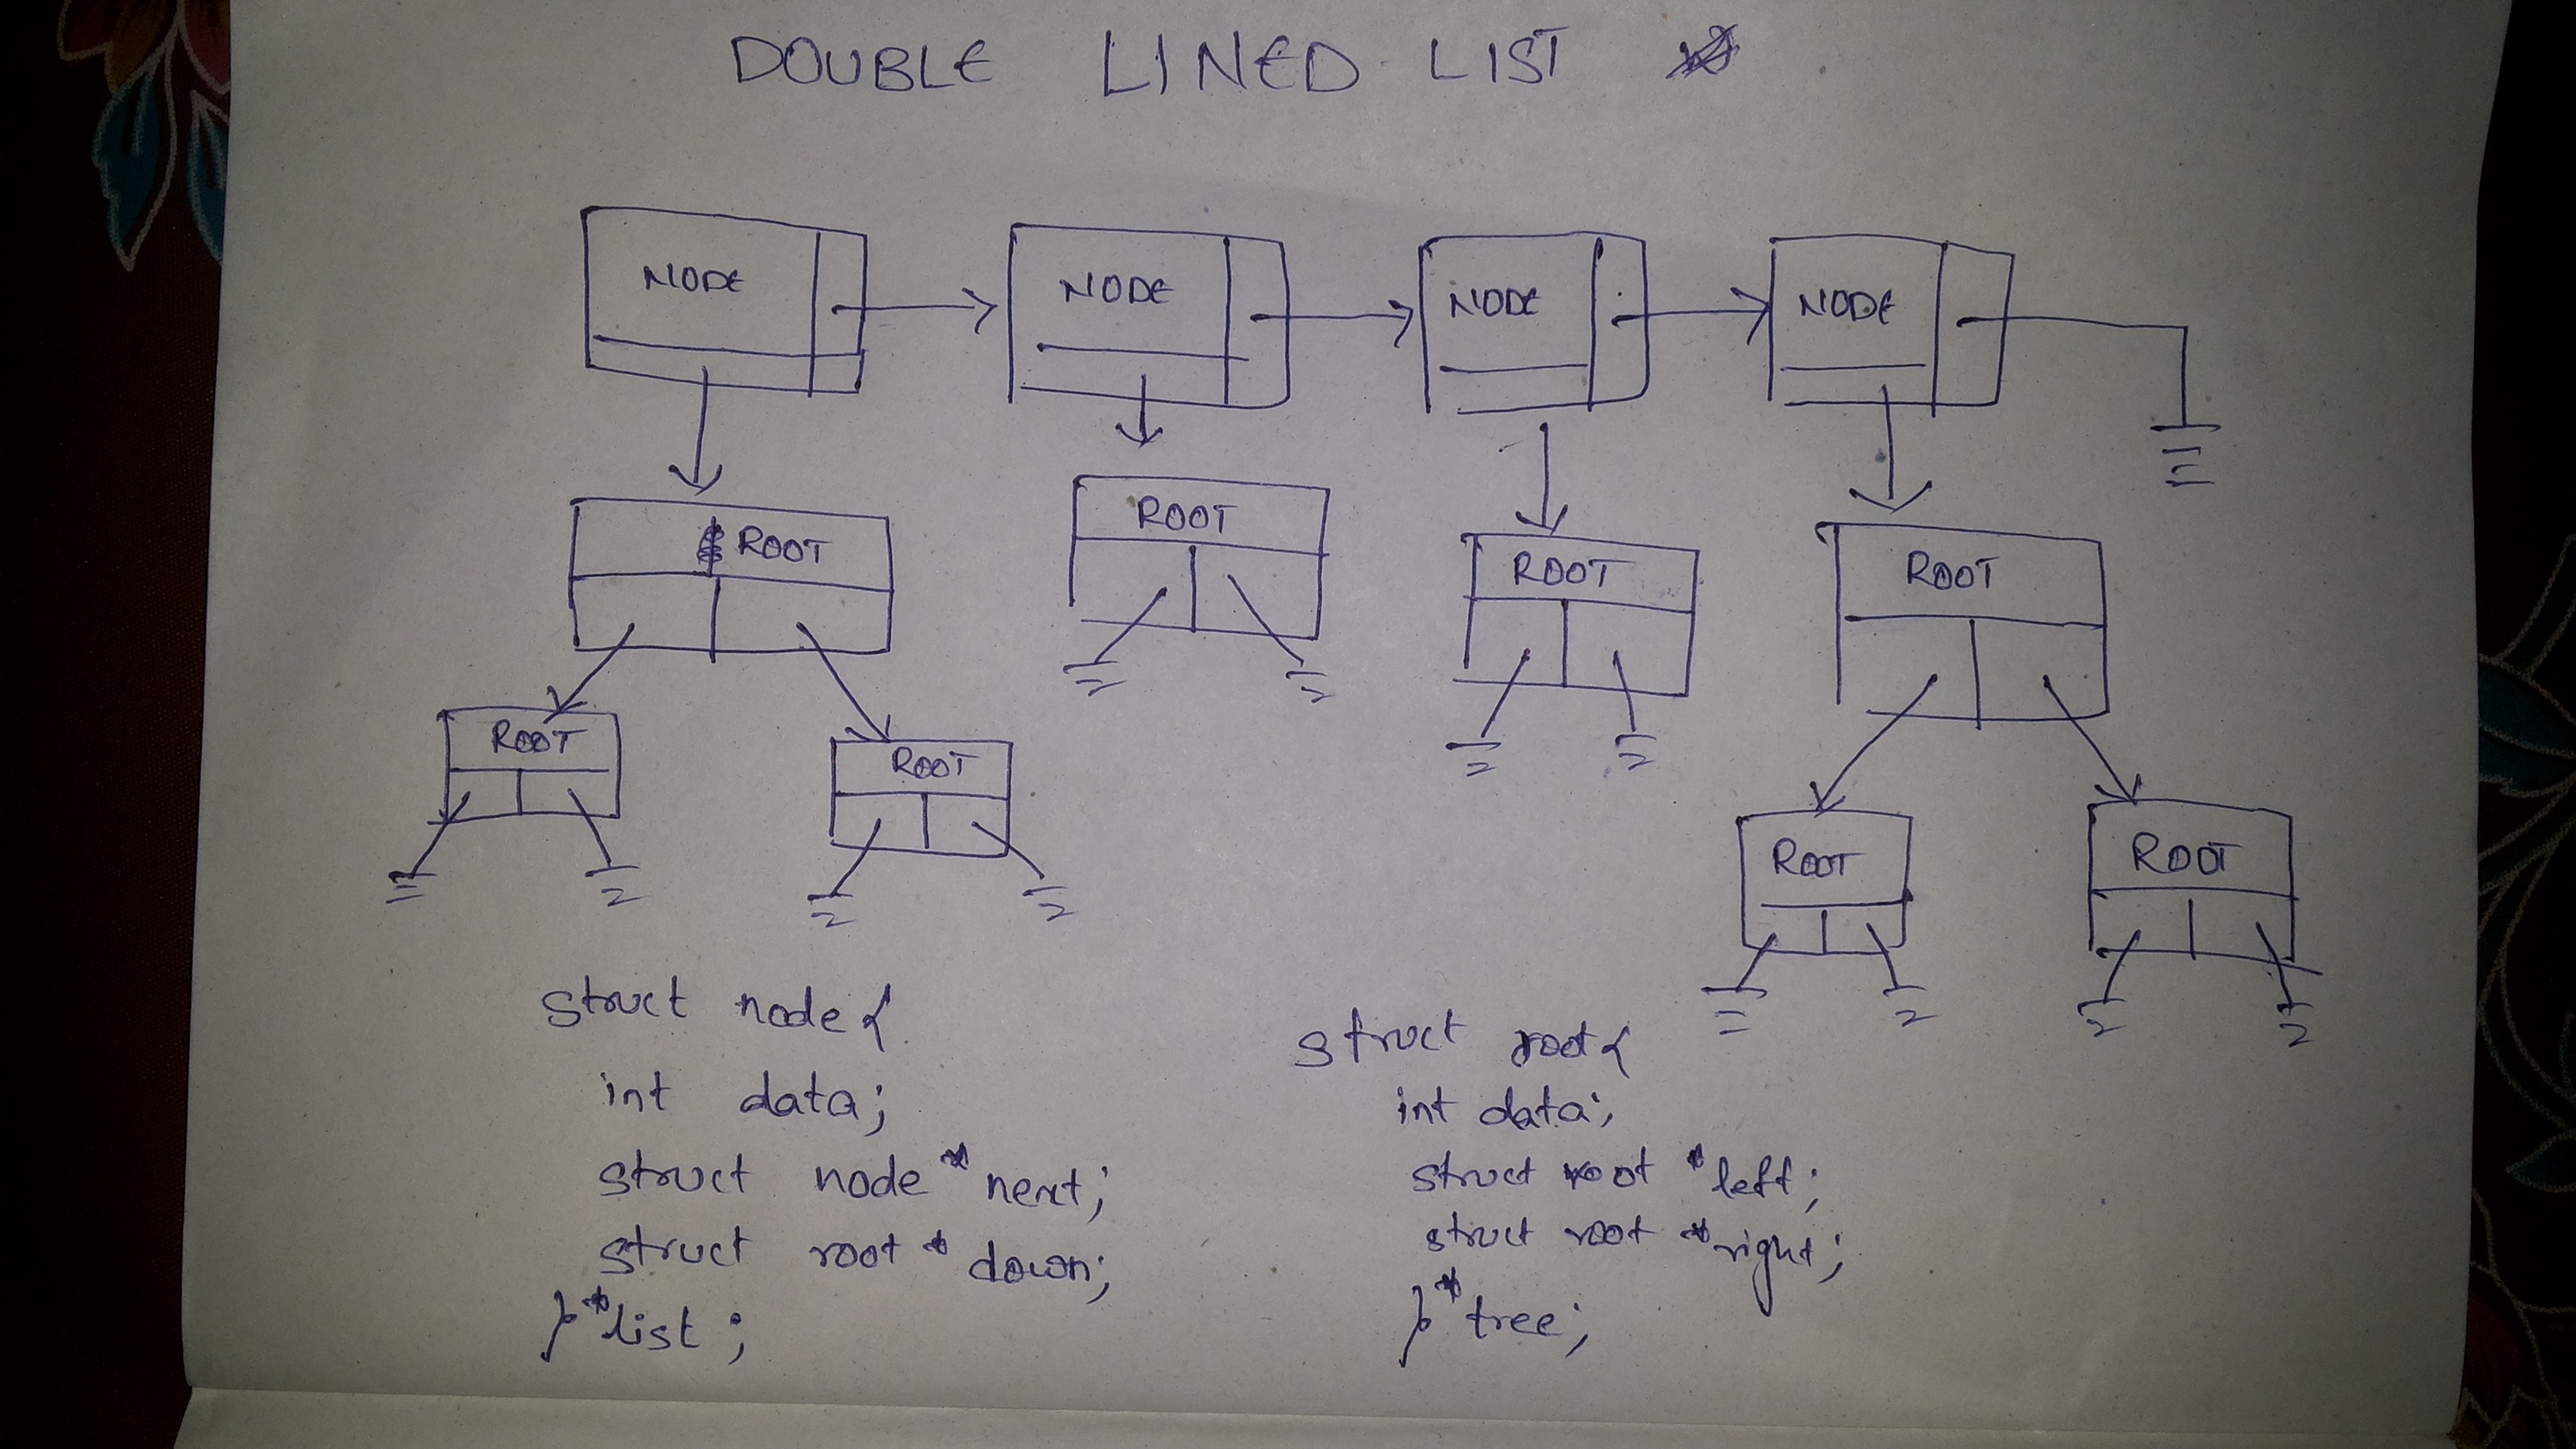 DOUBLE LINED LIST
NODE NODE NODE NODE
ROOT ROOT ROOT ROOT
ROOT ROOT ROOT ROOT
struct node {
int data;
struct node *next;
struct root * down;
} *list ;
struct root {
int data;
struct root *left;
struct root *right;
} *tree;